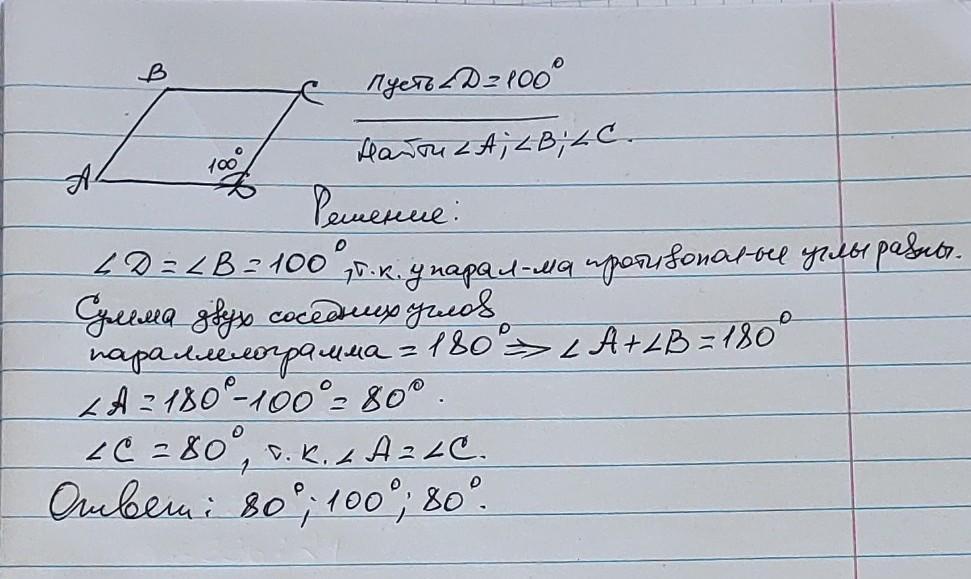 B
C
Пусть ∠D=100°
100°
A
D
Найти ∠A; ∠B; ∠C.
Решение:
∠D=∠B=100°, т.к. у парал-ма противопол-ые углы равны.
Сумма двух соседних углов
параллелограмма = 180° ⇒ ∠A+∠B=180°
∠A=180°-100°=80°.
∠C=80°, т.к. ∠A=∠C.
Ответ: 80°; 100°; 80°.